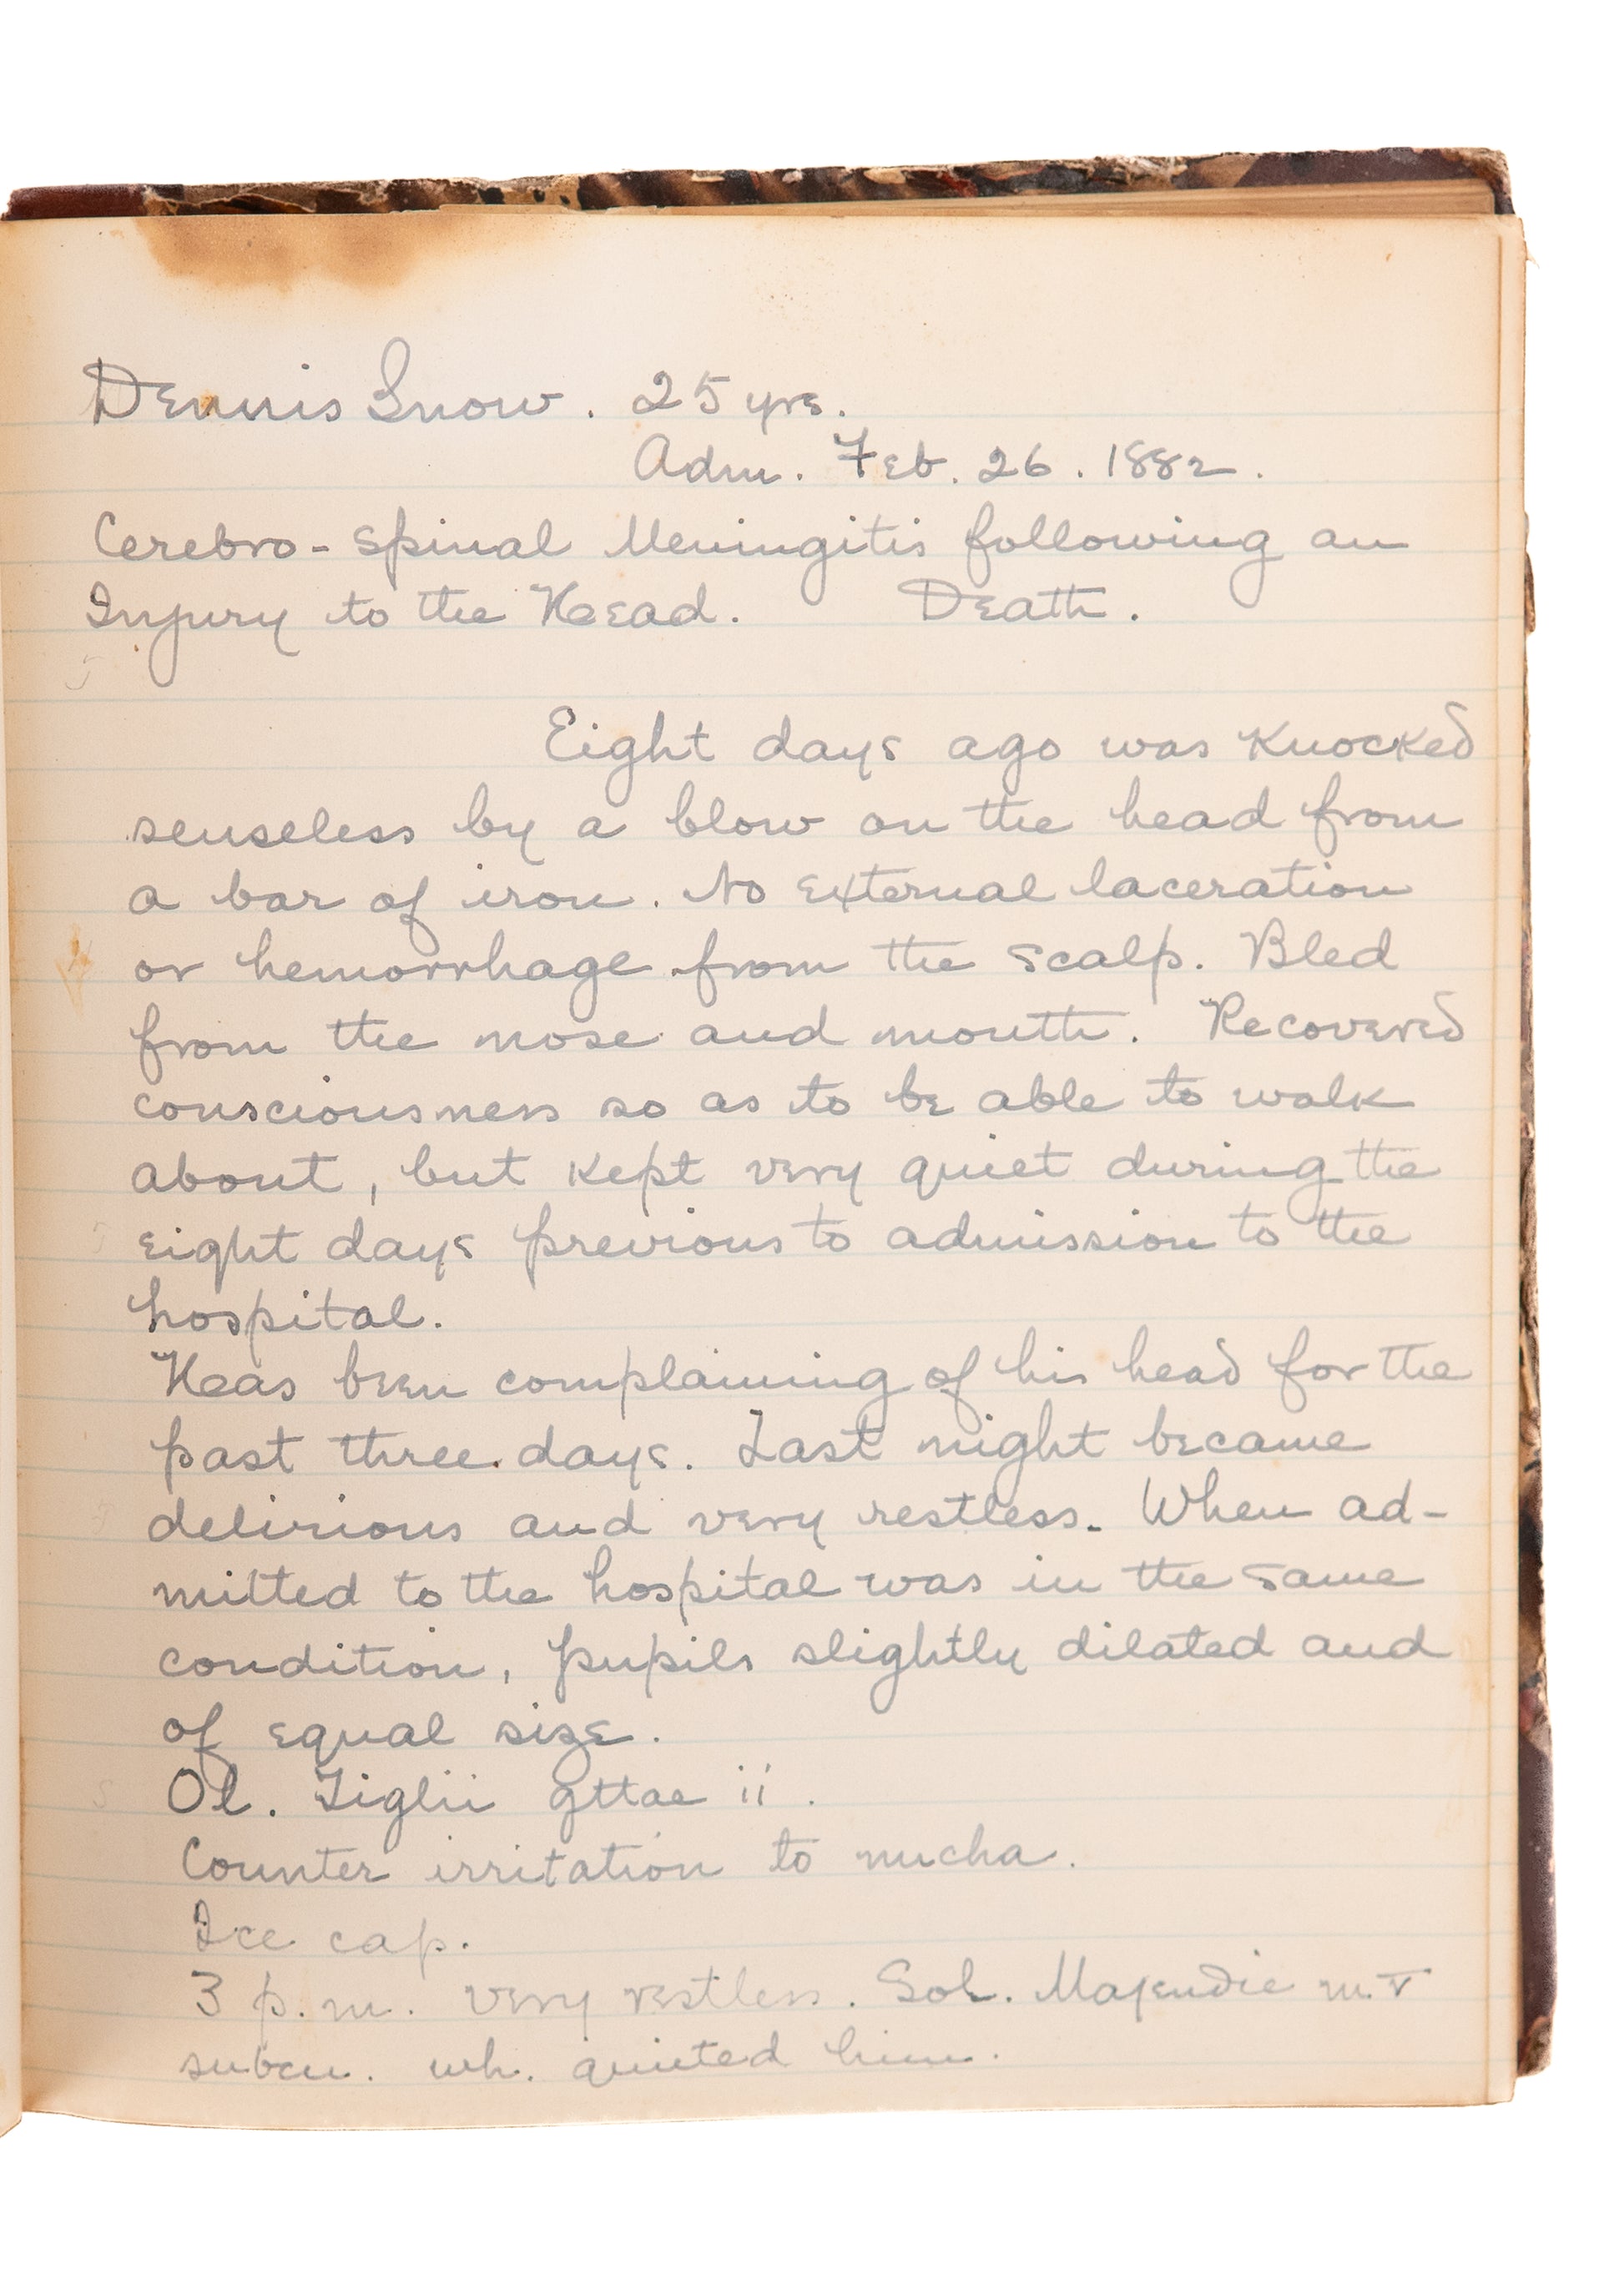 Dennis Snow. 25 yrs.
Adm. Feb. 26. 1882.
Cerebro-Spinal Meningitis following an
Injury to the Head. Death.
Eight days ago was knocked
senseless by a blow on the head from
a bar of iron. No external laceration
or hemorrhage from the scalp. Bled
from the nose and mouth. Recovered
consciousness so as to be able to walk
about, but kept very quiet during the
eight days previous to admission to the
hospital.
Has been complaining of his head for the
past three days. Last night became
delirious and very restless. When ad-
mitted to the hospital was in the same
condition, pupils slightly dilated and
of equal size.
Ol. Tiglii gttae ii.
Counter irritation to nucha.
Ice cap.
3 p.m. very restless. Sol. Majendie m. v
subcu. wh. quieted him.